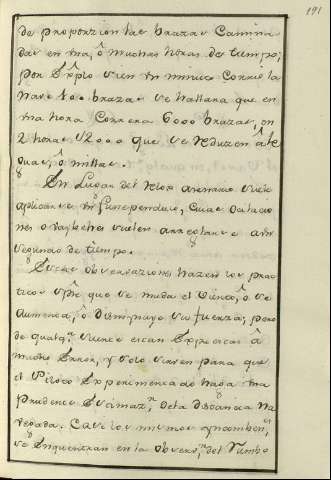 191
de proporzion las brazas Camina
das en una, ô muchas horas de tiempo;
por Explo si en un minuto Corrio la
nave 100 brazas se hallara que en
una hora Correra 6000 brazas, en
2 horas 12000 que se reduzen â le
guas, ô millas.
En Lugar del relox arenario suele
aplicarse un funependulo, cuias oscilacio
nes o vaybenes suelen arreglarse a un
segundo de tiempo.
Estas observaziones hazen los prac
ticos spre que se muda el viento, ô se
aumenta, ô disminuye su fuerza; pero
de qualqr suerte estan Expuestas â
mucho Error, y solo sirven para que
el Piloto Experimentado haga una
prudente Estimazn de la distancia na
vegada. Casi los mismos
se Enquentran en la observn del Rumbo